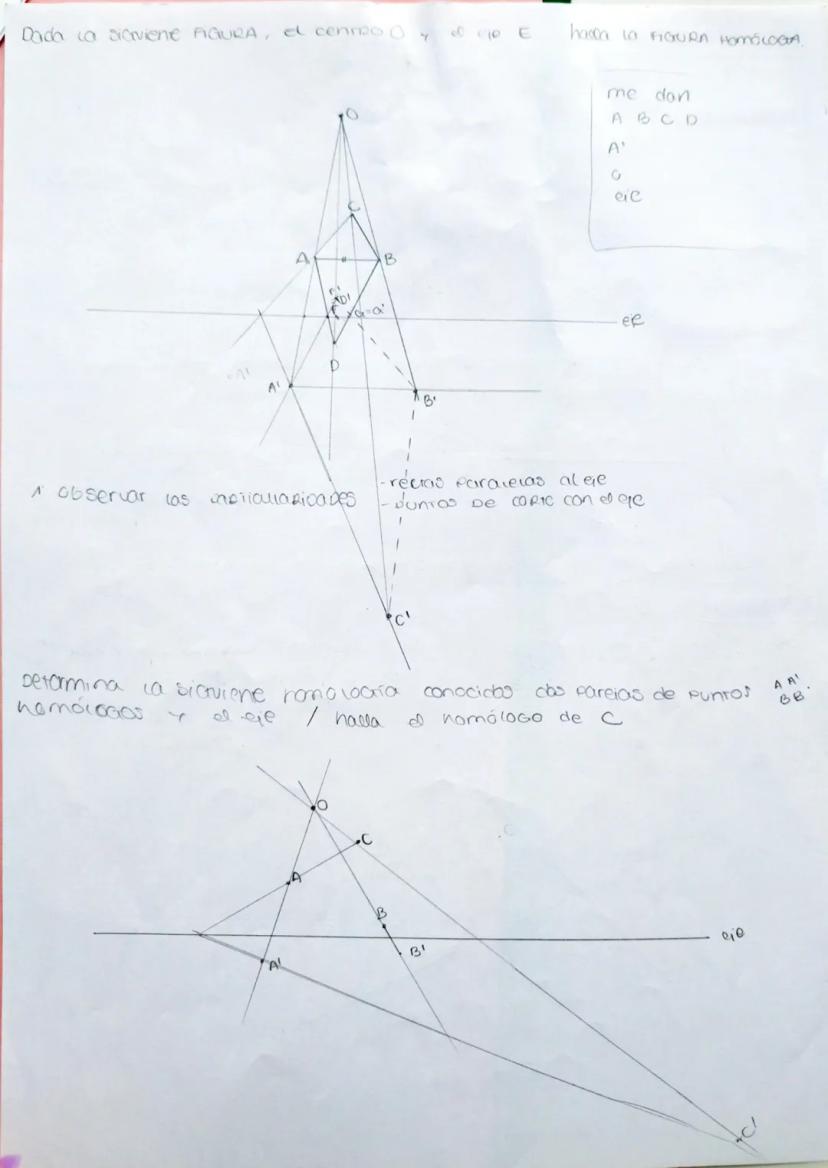 Dada la siguiene FIGURA, el centro O y el eje E halla la FIGURA HOMÓLOGA.
me dan
A B C D
A'
O
eje
O
C
A B
D'
a=a'
eje
D
A'
A' B'
1 Observar las particularidades
-rectas paralelas al eje
-puntos DE CORTE con el eje
C'
Determina la siguiene homología conocidos dos parejas de puntos A A'
B B'
homólogos y el eje / halla el homólogo de C
O
C
C
A
B
eje
B'
A'
C'